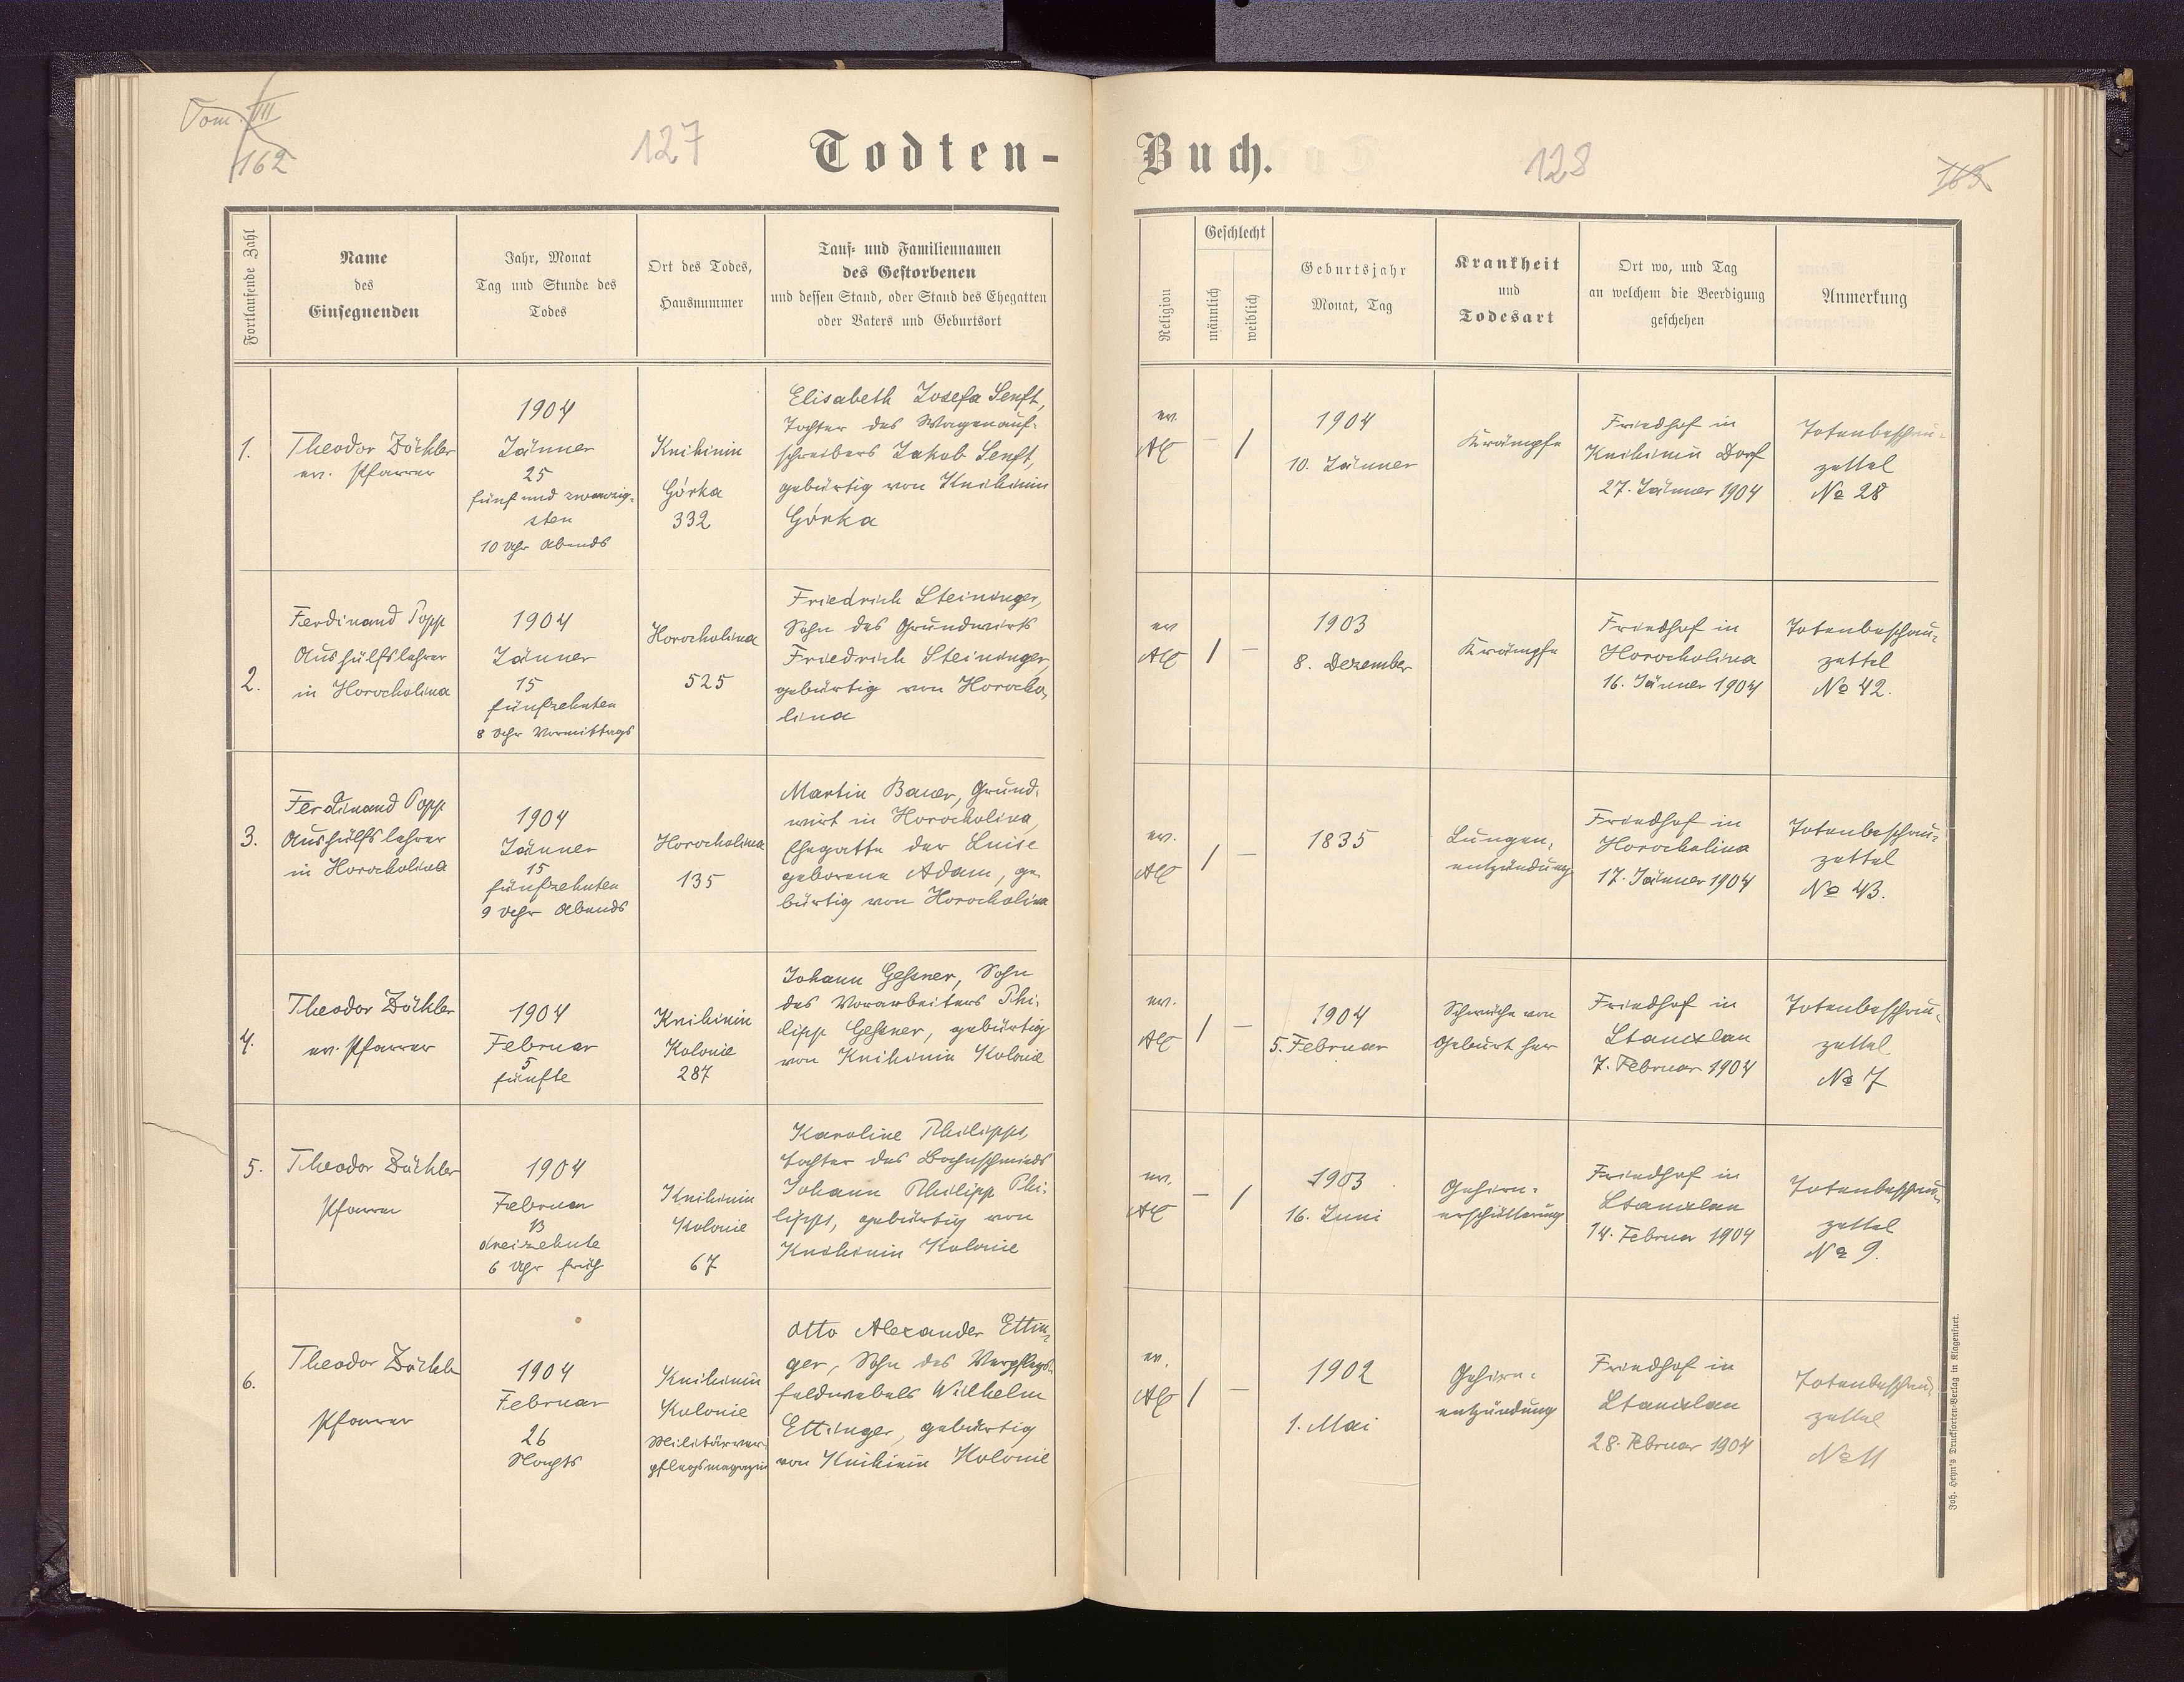 Tom. III
162
127
Todten-
Buch.
128
163
Fortlaufende Zahl
Name
des
Einsegnenden
Jahr, Monat
Tag und Stunde des
Todes
Ort des Todes,
Hausnummer
Tauf- und Familiennamen
des Gestorbenen
und dessen Stand, oder Stand des Ehegatten
oder Vaters und Geburtsort
Religion
Geschlecht
männlich
weiblich
Geburtsjahr
Monat, Tag
Krankheit
und
Todesart
Ort wo, und Tag
an welchem die Beerdigung
geschehen
Anmerkung
1.
Theodor Zöckler
ev. Pfarrer
1904
Jänner
25
fünf und zwanzig-
sten
10 Uhr Abends
Knihinin
Górka
332
Elisabeth Josefa Senft,
Tochter des Wagenauf-
schreibers Jakob Senft,
gebürtig von Knihinin
Górka
ev.
AC
–
/
1904
10. Jänner
Krämpfe
Friedhof in
Knihinin Dorf
27. Jänner 1904
Totenbeschau-
zettel
No 28
2.
Ferdinand Popp
Aushülfslehrer
in Horocholina
1904
Jänner
15
fünfzehnten
8 Uhr Vormittags
Horocholina
525
Friedrich Steininger,
Sohn des Grundwirts
Friedrich Steininger,
gebürtig von Horocho-
lina
ev
AC
/
–
1903
8. Dezember
Krämpfe
Friedhof in
Horocholina
16. Jänner 1904
Totenbeschau-
zettel
No 42.
3.
Ferdinand Popp
Aushülfslehrer
in Horocholina
1904
Jänner
15
fünfzehnten
9 Uhr Abends
Horocholina
135
Martin Bauer, Grund-
wirt in Horocholina,
Ehegatte der Luise
geborene Adam, ge-
bürtig von Horocholina
ev.
AC
/
–
1835
Lungen-
entzündung
Friedhof in
Horocholina
17. Jänner 1904
Totenbeschau-
zettel
No 43.
4.
Theodor Zöckler
ev. Pfarrer
1904
Februar
5
fünfte
Knihinin
Kolonie
287
Johann Geßner, Sohn
des Vorarbeiters Phi-
lipp Geßner, gebürtig
von Knihinin Kolonie
ev.
AC
/
–
1904
5. Februar
Schwäche von
Geburt her
Friedhof in
Stanislau
7. Februar 1904
Totenbeschau-
zettel
No 7
5.
Theodor Zöckler
Pfarrer
1904
Februar
13
dreizehnte
6 Uhr früh
Knihinin
Kolonie
67
Karoline Philipps,
Tochter des Bahnschmieds
Johann Philipp Phi-
lipps, gebürtig von
Knihinin Kolonie
ev.
AC
–
/
1903
16. Juni
Gehirn-
erschütterung
Friedhof in
Stanislau
14. Februar 1904
Totenbeschau-
zettel
No 9.
6.
Theodor Zöckler
Pfarrer
1904
Februar
26
Nachts
Knihinin
Kolonie
Militärver-
pflegsmagazin
Otto Alexander Ettin-
ger, Sohn des Verpflegs-
feldwebels Wilhelm
Ettinger, gebürtig
von Knihinin Kolonie
ev.
AC
/
–
1902
1. Mai
Gehirn-
entzündung
Friedhof in
Stanislau
28. Februar 1904
Totenbeschau-
zettel
No 11
Joh. Heyn's Drucksorten-Verlag in Klagenfurt.